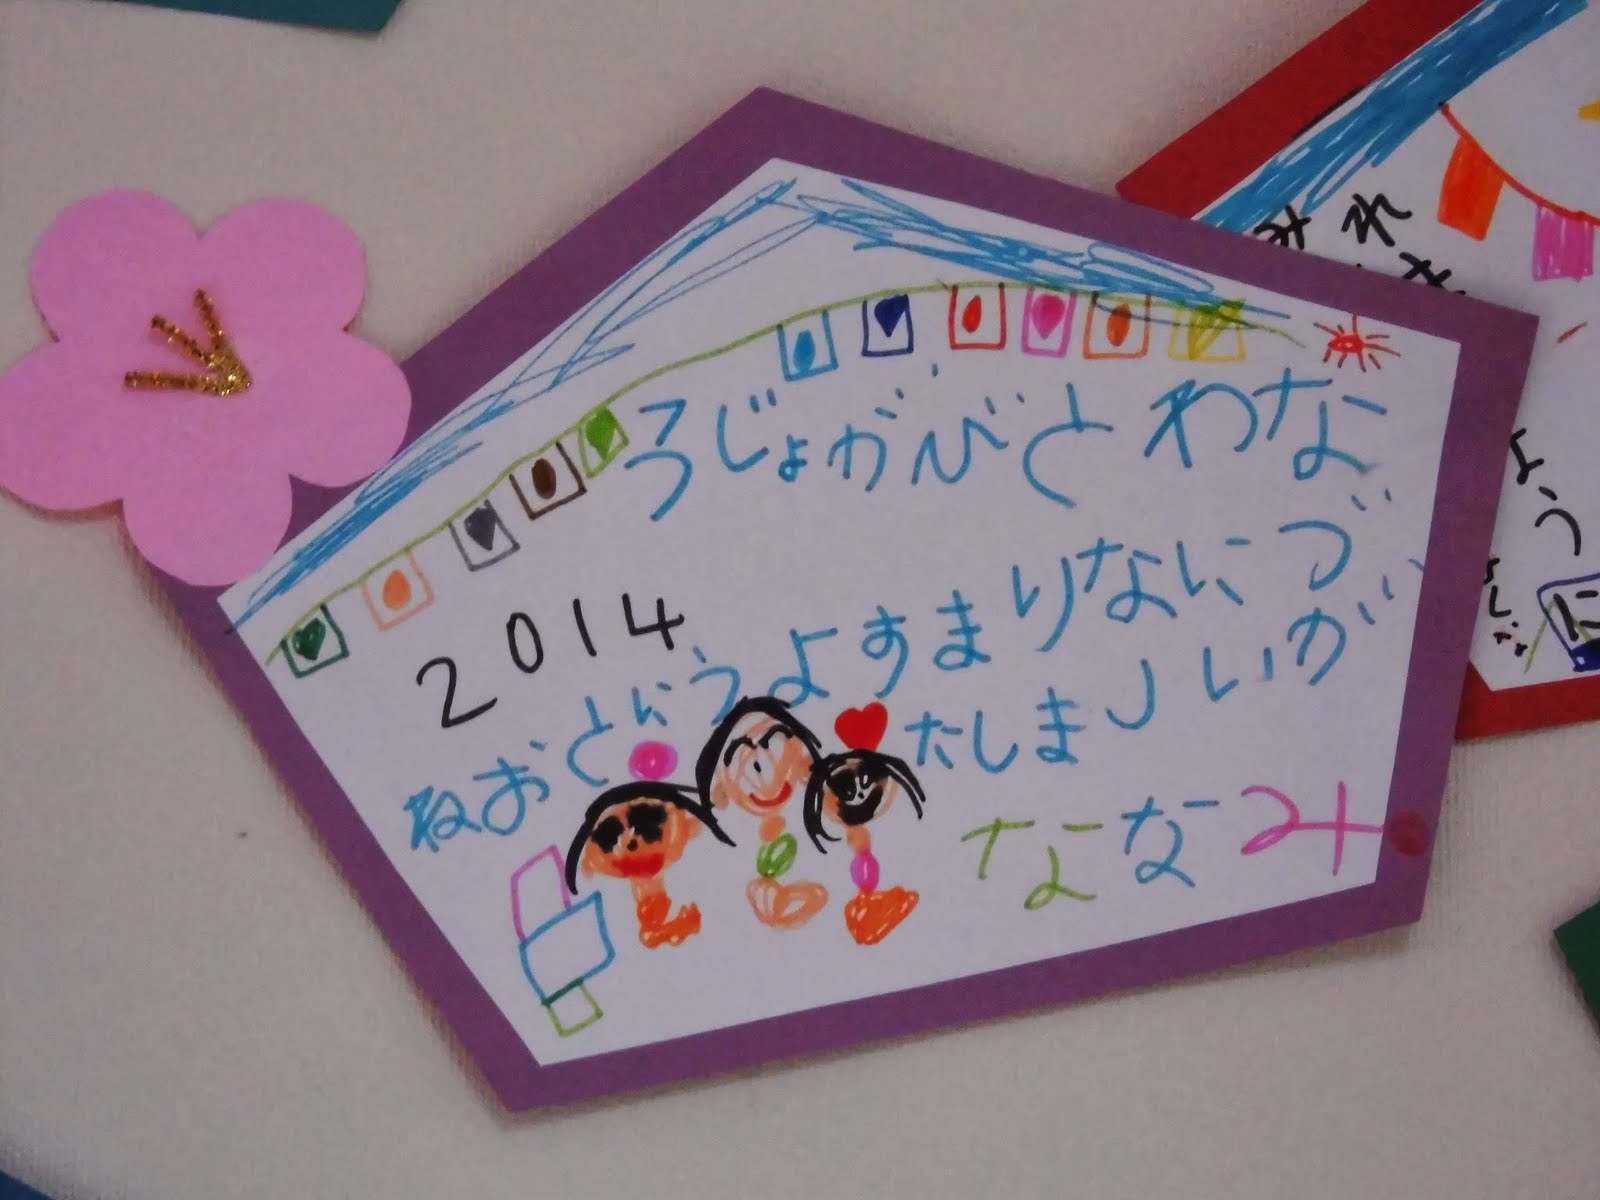 なわとびがじょう
づになりますようにとおね
がいしました
2014
ななみ